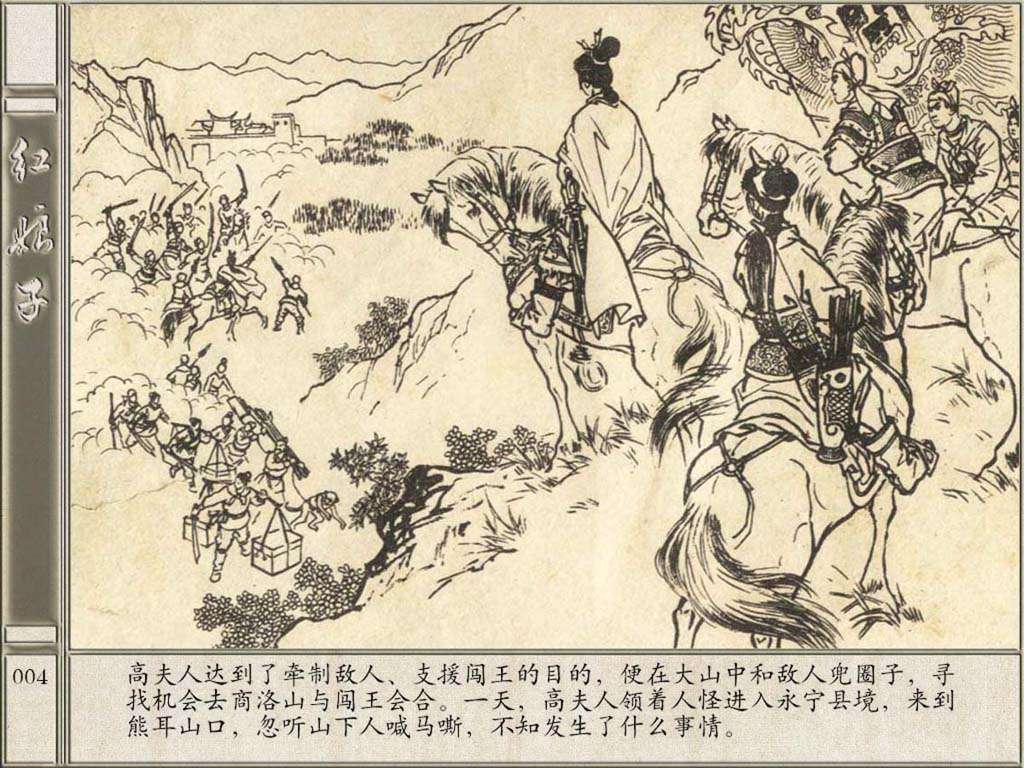 红娘子
004
高夫人达到了牵制敌人、支援闯王的目的，便在大山中和敌人兜圈子，寻
找机会去商洛山与闯王会合。一天，高夫人领着人怪进入永宁县境，来到
熊耳山口，忽听山下人喊马嘶，不知发生了什么事情。